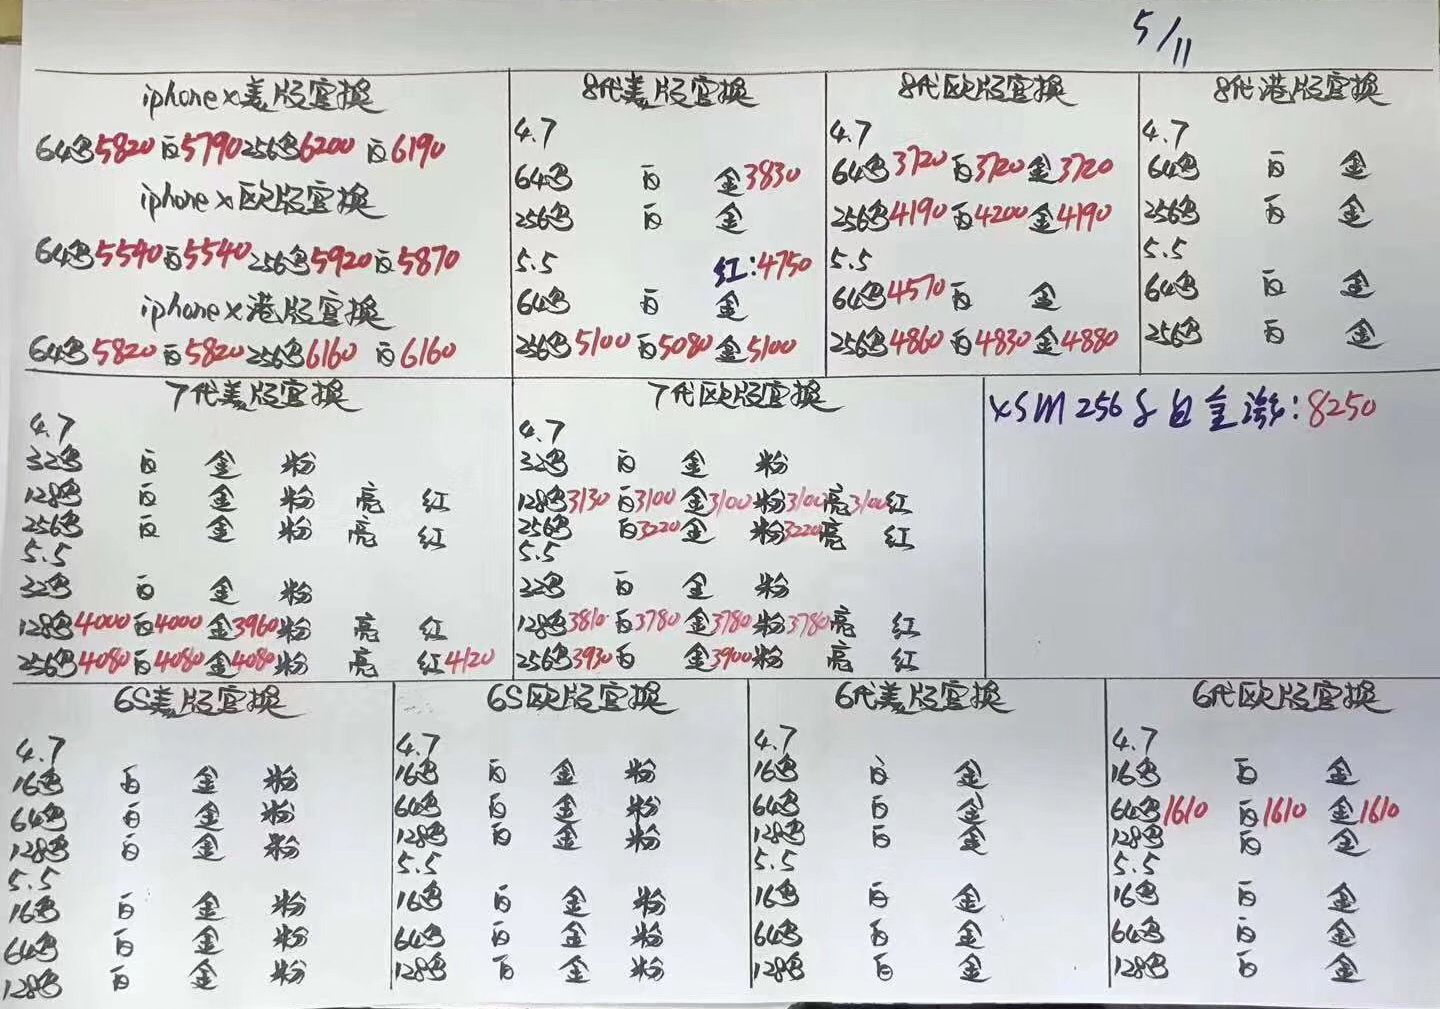 5/11
iphone x美版官换
64黑5820 白5790 256黑6200 白6190
iphone x欧版官换
64黑5540白5540 256黑5920白5870
iphone x港版官换
64黑5820 白5820 256黑6160 白6160
8代美版官换
4.7
64黑 白 金3830
256黑 白 金
5.5 红:4750
64黑 白 金
256黑5100 白5080 金5100
8代欧版官换
4.7
64黑3720 白3720 金3720
256黑4190 白4200 金4190
5.5
64黑4570 白 金
256黑4860 白4830 金4880
8代港版官换
4.7
64黑 白 金
256黑 白 金
5.5
64黑 白 金
256黑 白 金
7代美版官换
4.7
32黑 白 金 粉
128黑 白 金 粉 亮 红
256黑 白 金 粉 亮 红
5.5
32黑 白 金 粉
128黑4000 白4000 金3960 粉 亮 红
256黑4080 白4080 金4080 粉 亮 红4120
7代欧版官换
4.7
32黑 白 金 粉
128黑3130 白3100 金3100 粉3100 亮3100 红
256黑 白3220 金 粉3220 亮 红
5.5
32黑 白 金 粉
128黑3810 白3780 金3780 粉3780 亮 红
256黑3930 白 金3900 粉 亮 红
XSM 256 白 金 :8250
6S美版官换
4.7
16黑 白 金 粉
64黑 白 金 粉
128黑 白 金 粉
5.5
16黑 白 金 粉
64黑 白 金 粉
128黑 白 金 粉
6S欧版官换
4.7
16黑 白 金 粉
64黑 白 金 粉
128黑 白 金 粉
5.5
16黑 白 金 粉
64黑 白 金 粉
128黑 白 金 粉
6代美版官换
4.7
16黑 白 金
64黑 白 金
128黑 白 金
5.5
16黑 白 金
64黑 白 金
128黑 白 金
6代欧版官换
4.7
16黑 白 金
64黑1610 白1610 金1610
128黑 白 金
5.5
16黑 白 金
64黑 白 金
128黑 白 金